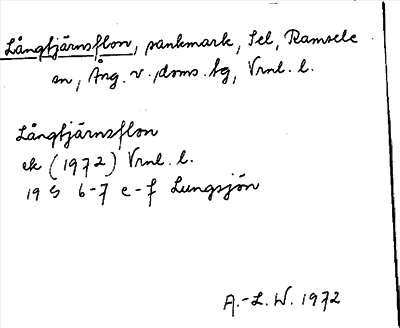 Långtjärnsflon, sankmark, Sel, Ramsele
sn, Ång. v. doms. bg, Vrnl. l.
Långtjärnsflon
ek (1972) Vrnl. l.
19 G 6-7 e-f Lungsjön
A.-L. W. 1972